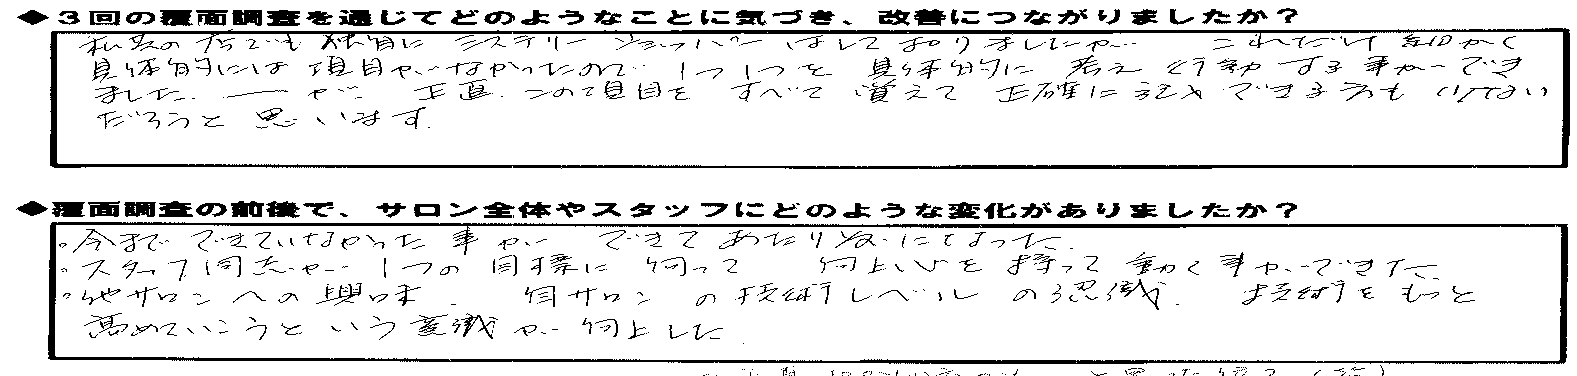 ◆３回の覆面調査を通じてどのようなことに気づき、改善につながりましたか？
私共の店でも独自にミステリーショッパーはしておりましたが… これだけ細かく
具体的には項目がなかったので 1つ1つを具体的に考え行動する事ができ
ました。――が、正直、この項目をすべて覚えて正確に記入できる方も少ない
だろうと思います。
◆覆面調査の前後で、サロン全体やスタッフにどのような変化がありましたか？
。今までできていなかった事が できてあたり前になった。
。スタッフ同志が 1つの目標に向って 向上心を持って動く事ができた。
。他サロンへの興味、自サロンの技術レベルの認識、技術をもっと
高めていこうという意識が向上した。